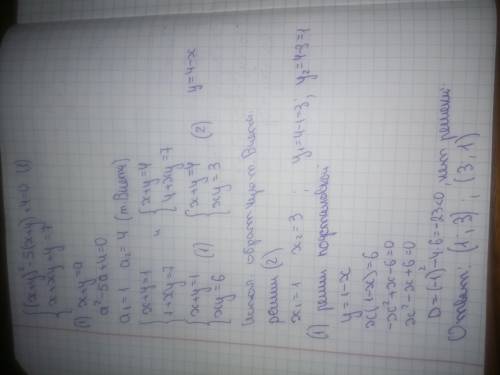 {(x+y)²-5(x+y)+4=0 (1)
{x+xy+y=7
(1) x+y=a
a²-5a+4=0
a₁=1 a₂=4 (т. Виета)
{x+y=1 и {x+y=4
{1+xy=7 {4+xy=7
{x+y=1 (1) {x+y=4 (2) y=4-x
{xy=6 {xy=3
Используя обратную т. Виета
решим (2)
x₁=1 x₂=3; y₁=4-1=3; y₂=4-3=1
(1) решим подстановкой
y=1-x
x(1-x)=6
-x²+x-6=0
x²-x+6=0
D=(-1)²-4·6=-23<0, нет решений.
Ответ: (1,3); (3,1)